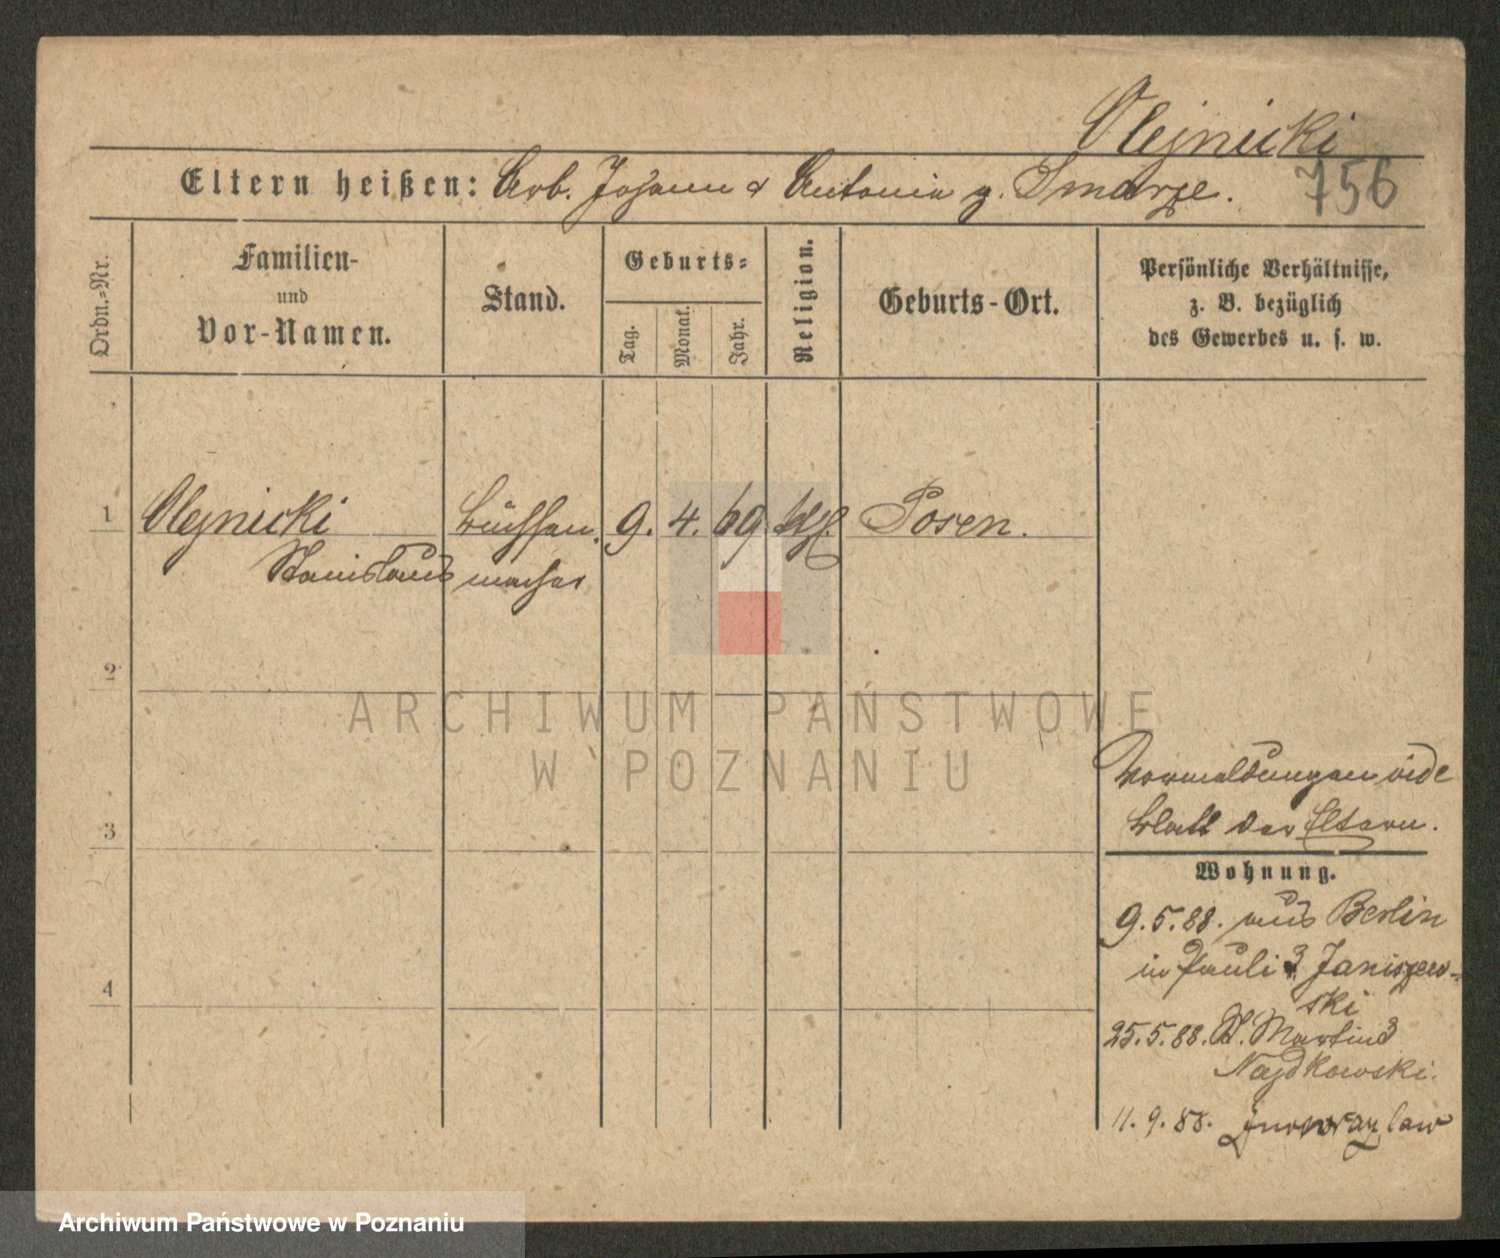 Olejnicki
Eltern heißen: Arb. Johann & Antonia g. Smarze.
756
Ordn.-Nr.
Familien-
und
Vor-Namen.
Stand.
Geburts-
Tag.
Monat.
Jahr.
Religion.
Geburts-Ort.
Persönliche Verhältnisse,
z. B. bezüglich
des Gewerbes u. s. w.
1 Olejnicki Büchsen- 9. 4. 69 kth. Posen.
Stanislaus macher
2
3
4
Vormeldungen vide
Blatt der Eltern.
Wohnung.
9.5.88. aus Berlin
in Pauli 3 Janiszew-
ski
25.5.88. St. Martin 3
Najdkowski.
11.9.88. Inowrazlaw
ARCHIWUM PAŃSTWOWE
W POZNANIU
Archiwum Państwowe w Poznaniu